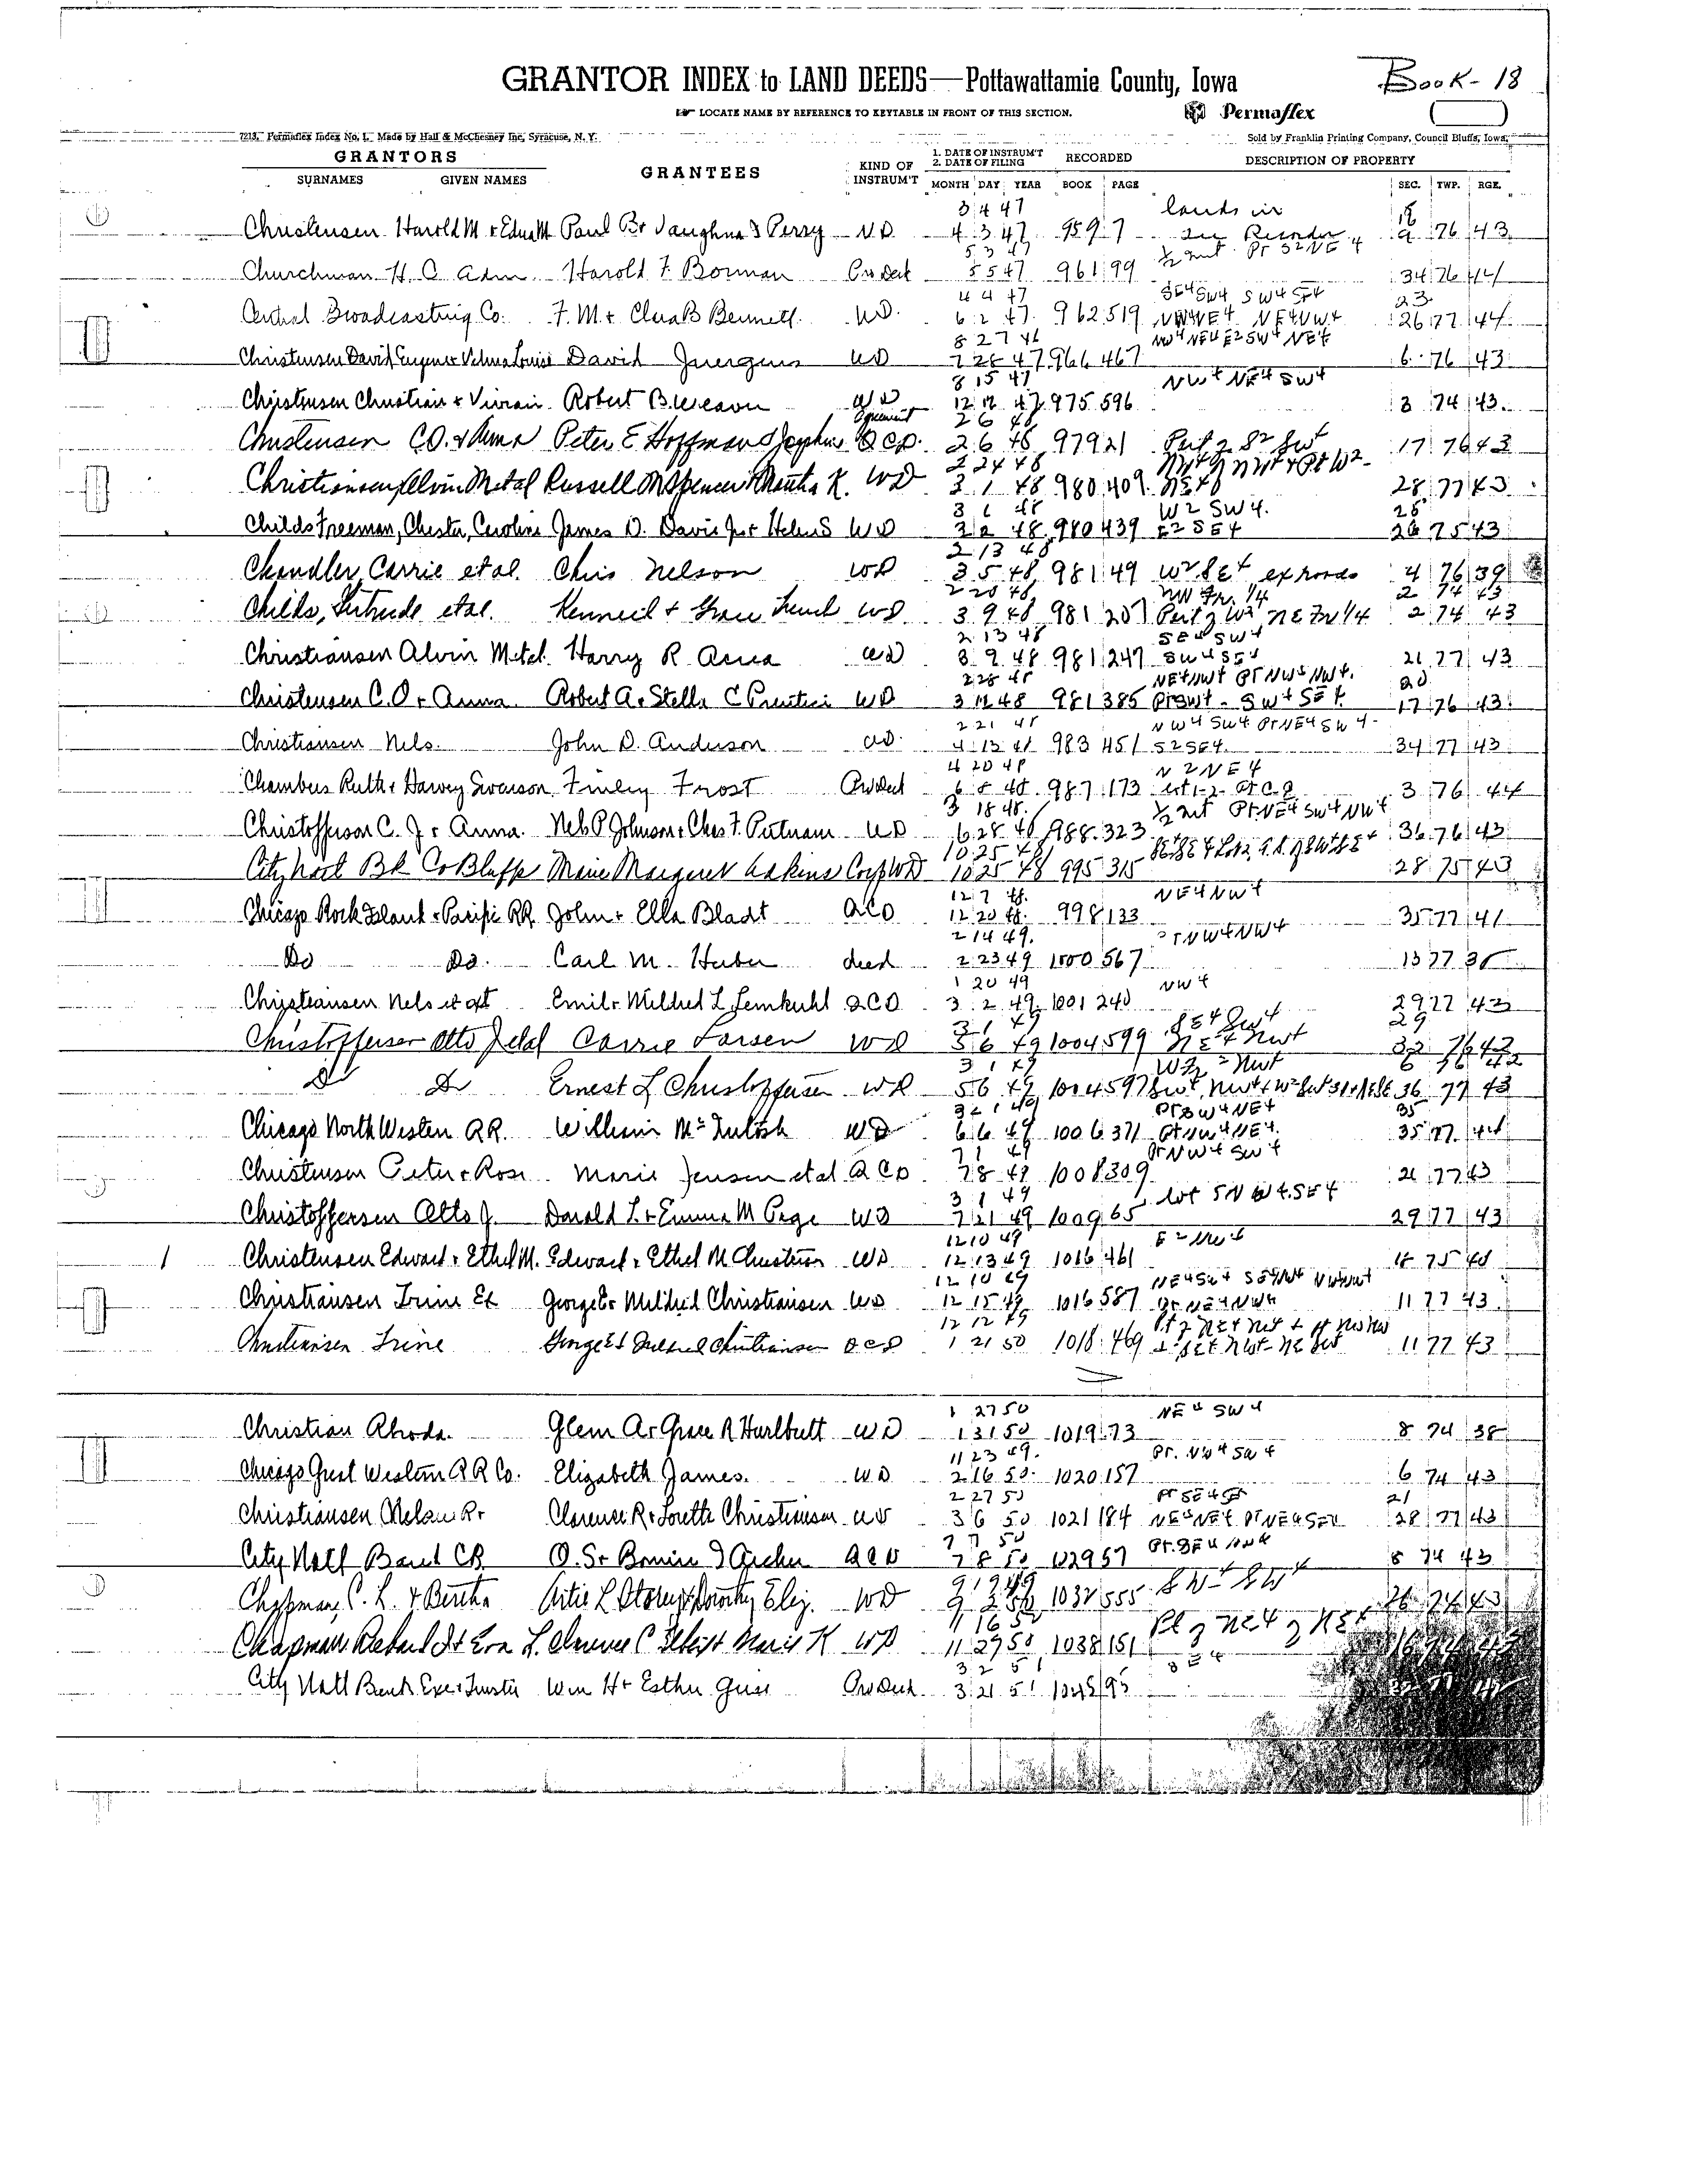 Book-18
GRANTOR INDEX to LAND DEEDS—Pottawattamie County, Iowa
LOCATE NAME BY REFERENCE TO KEYTABLE IN FRONT OF THIS SECTION.
Permaflex
7213, Permaflex Index No. 1. Made by Hall & McChesney Inc, Syracuse, N. Y.
Sold by Franklin Printing Company, Council Bluffs, Iowa
GRANTORS GRANTEES KIND OF INSTRUM'T 1. DATE OF INSTRUM'T 2. DATE OF FILING RECORDED DESCRIPTION OF PROPERTY
SURNAMES GIVEN NAMES MONTH DAY YEAR BOOK PAGE SEC. TWP. RGE.
3 4 47 lands in
Christensen Harold M + Edna M Paul B + Vaughna J Perry WD 4 3 47 959 7 see Recorder 9 76 43
5 3 47 1/2 int Pt S2NE4
Churchman H. C Adm Harold F. Borman 5 5 47 961 99 34 76 44
4 4 47 SE4SW4 SW4SE4 23
Central Broadcasting Co. F. M. + Clara B Bennett WD 6 2 47 962 519 NW4NE4 NE4NW4 26 77 44
8 27 46 NW4NE4 E2SW4NE4
Christensen David Eugene + Velma Louise David Juergens WD 7 28 47 966 467 6 76 43
8 15 47 NW4NE4SW4
Christensen Christian + Vivian Robert B. Weaver WD 12 12 47 975 596 3 74 43
Agreement 2 6 48
Christensen C.O. + Anna Peter E Hoffman QCD 2 6 48 979 21 Part of S2 SW4 17 76 43
2 24 48
Christiansen, Alvin M etal Russell M Spencer + Martha K. WD 3 1 48 980 409 28 77 43
3 1 48 W2SW4 25
Childs Freeman, Chester, Caroline James D. Davis Jr + Helen S WD 3 2 48 980 439 E2SE4 26 75 43
2 13 48
Chandler, Carrie etal Chris Nelson WD 3 5 48 981 49 W2SE4 ex roads 4 76 39
2 20 48 NW Fr. 1/4 2 74 43
Childs, Gertrude etal. WD 3 9 48 981 207 Part of W2 NE Fr 1/4 2 74 43
2 13 48 SE4SW4
Christiansen Alvin M etal Harry R WD 3 9 48 981 247 SW4SE4 21 77 43
2 28 48 NE4NW4 Pt NW4NW4 20
Christensen C.O + Anna Robert A + Stella C Prentice WD 3 11 48 981 385 SW4SE4 17 76 43
2 21 48 NW4SW4 Pt NE4SW4
Christiansen Nels John D. Anderson WD 4 13 48 983 451 S2SE4 34 77 43
4 20 48 N2NE4
Chambers Ruth + Harvey Swanson Finley Frost 6 8 48 987 173 3 76 44
3 18 48 1/2 int Pt NE4SW4NW4
Christofferson C. J + Anna. Nels P Johnson + Chas F. Putnam WD 6 28 48 988 323 36 76 43
10 25 48
City Natl Bk Co Bluffs Marie Margaret Askins Corp WD 10 25 48 995 315 28 75 43
12 7 48 NE4NW4
Chicago Rock Island + Pacific RR John + Ella Bladt QCD 12 20 48 998 133 35 77 41
2 14 49 Pt NW4NW4
Do Do Carl M. Huber deed 2 23 49 1000 567 13 77
1 20 49 NW4
Christiansen Nels et al Emil + Mildred L Lemkuhl QCD 3 2 49 1001 240 29 77 43
3 1 49 SE4SW4 29
Christoffersen Otto J etal Carrie Larsen WD 5 6 49 1004 599 NE4NW4 32 76 42
3 1 49 6 76 42
Do Do Ernest L Christoffersen WD 5 6 49 1004 597 36 77 43
3 21 49 Pt SW4NE4 35
Chicago North Western RR. William McIntosh WD 6 6 49 1006 371 Pt NW4NE4 35 77 44
7 1 49 Pt NW4SW4
Christensen Peter + Rose Marie Jensen etal QCD 7 8 49 1008 309 21 77 43
3 1 49 Lot 5 NW4SE4
Christoffersen Otto J. Donald L + Emma M Page WD 7 21 49 1009 65 29 77 43
12 10 49 E2NW4
1 Christensen Edward + Ethel M. Edward + Ethel M Christensen WD 12 13 49 1016 461 18 75 40
12 10 49 NE4SW4 SE4NW4 NW4NW4
Christiansen Trine Ex George E + Mildred Christiansen WD 12 15 49 1016 587 Pt NE4NW4 11 77 43
12 12 49 Pt of NE4 NW4 + Pt NW NW
Christiansen Trine George E + Mildred Christiansen QCD 1 21 50 1018 469 + SE4 NW4 - NE SW4 11 77 43
1 27 50 NE4SW4
Christian Rhoda Glenn A + Grace R Hurlbutt WD 1 31 50 1019 73 8 74 38
11 23 49 Pt. NW4SW4
Chicago Great Western RR Co. Elizabeth James WD 2 16 50 1020 157 6 74 43
2 27 50 Pt SE4SE4 21
Christiansen Clarence R + Loretta Christiansen WD 3 6 50 1021 184 NE4NE4 Pt NE4SE4 28 77 43
7 7 50 Pt. SE4NW4
City Natl Bank CB O. S + QCD 7 8 50 8 74 43
SW4 SW4
Chapman, C. L. + Bertha Artie L Storey + Dorothy Eliz. WD 1032 555 26 74 43
11 16 50 Pt of NE4 of NE4
Chapman Richard D + Eva L. Clarence C Marie K WD 11 27 50 1038 151
3 2 51 SE4
City Natl Bank Exe + Trustee Wm H + Esther Guse 3 21 51